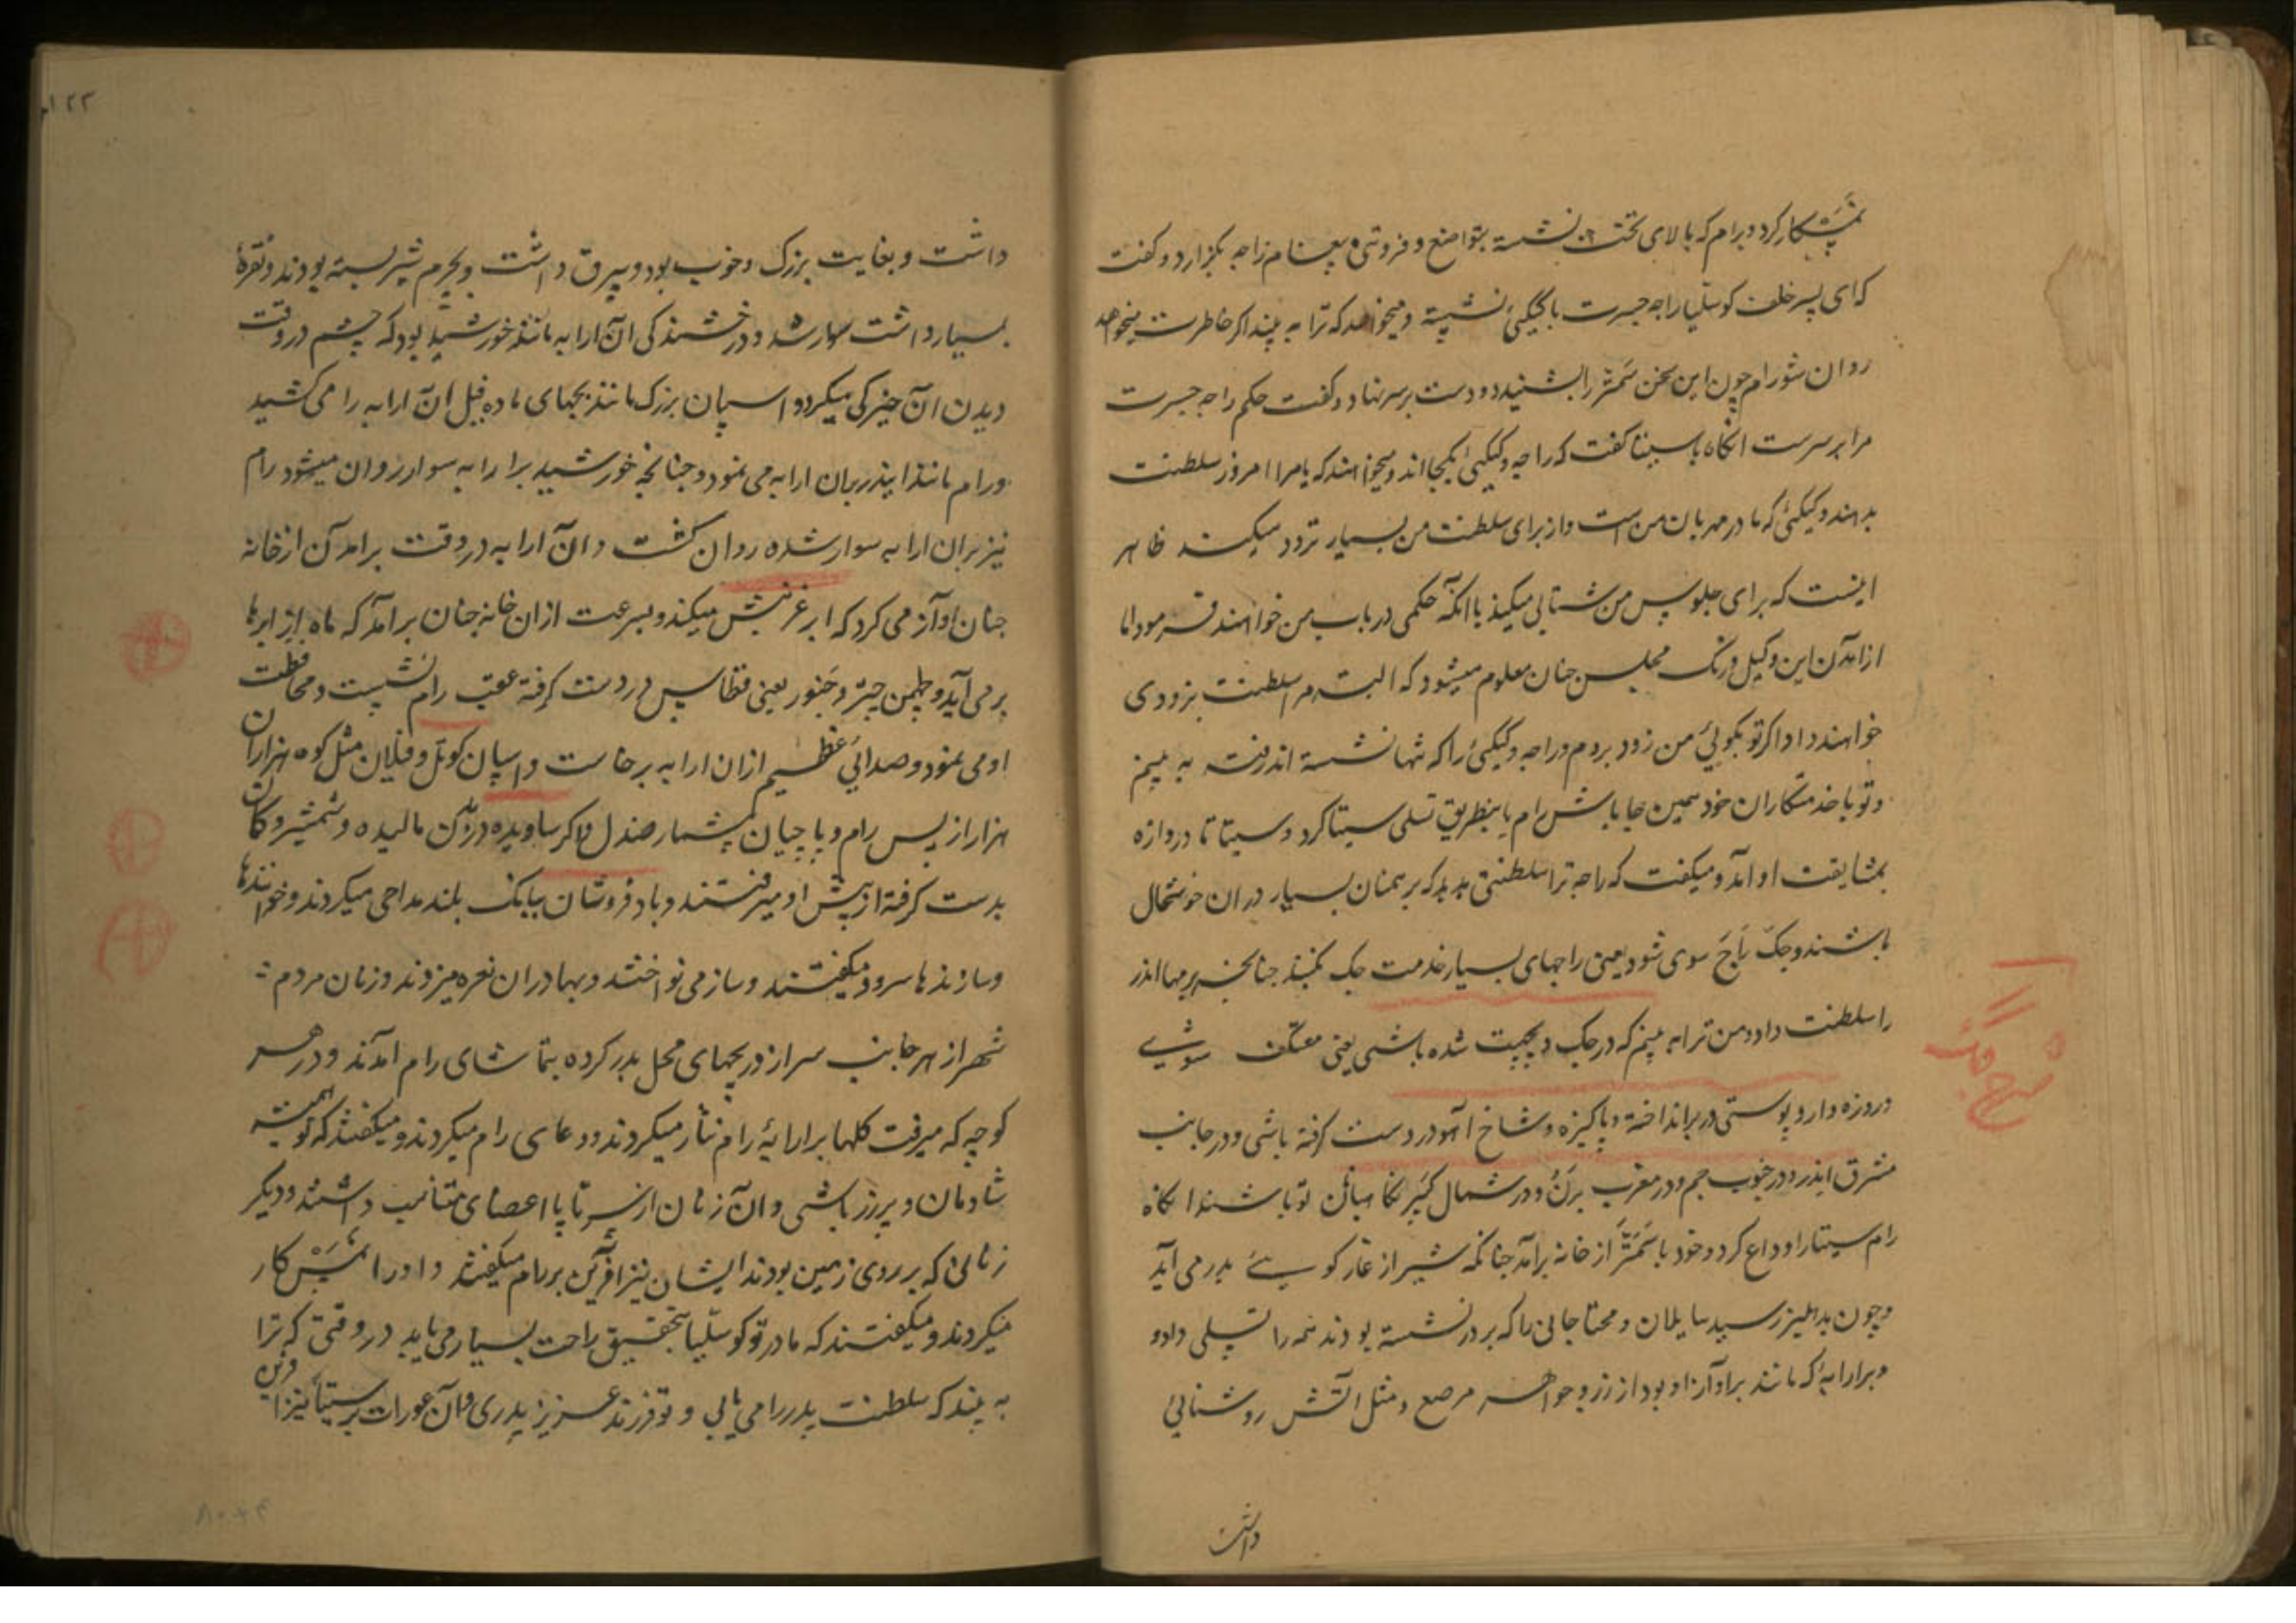 نمشکار کرد و برام که بالای تخت نشسته بتواضع و فروتنی پیغام راجه بگزارد و گفت
که ای پسر خلف کوسلیا راجه جسرت با کیکیئ نشسته و میخواهد که ترا به بیند اگر خاطرت میخواهد
روان شو رام چون این سخن سمنتر را بشنید دو دست بر سر نهاد و گفت حکم راجه جسرت
مرا بر سرست انگاه با سیتا گفت که راجه و کیکیئ یکجا اند و میخواهند که یا مرا امروز سلطنت
بدهند و کیکیئ که مادر مهربان من است و از برای سلطنت من بسیار تردد میکند ظاهر
اینست که برای جلوس من شتابی میکند یا انکه حکمی در باب من خواهند فرمود اما
از امدن این وکیل و رنگ مجلس چنان معلوم میشود که البته مرا سلطنت بزودی
خواهند داد اگر تو بگوئی من زود بروم و راجه و کیکیئ را که تنها نشسته اند رفته به بینم
و تو با خدمتکاران خود همین جا باش رام باینطریق تسلی سیتا کرد و سیتا تا دروازه
بمشایعت او آمد و میگفت که راجه ترا سلطنتی بدهد که برهمنان بسیار دران خوشحال
باشند و جک راج سوی شود یعنی راجهای بسیار خدمت جک کنند چنانچه برمها اندر
را سلطنت داد و من ترا به بینم که در جک دیچهت شده باشی یعنی معتکف شوی
و روزه دار و پوستی در بر انداخته و پاکیزه و شاخ آهو در دست گرفته باشی و در جانب
مشرق اندر و در جنوب جم و در مغرب برن و در شمال کبیر نگاهبان تو باشند انگاه
رام سیتا را وداع کرد و خود با سمنتر از خانه برآمد چنانکه شیر از غار کوهی بدر می آید
و چون بدهلیز رسید سایلان و محتاجانی را که بر در نشسته بودند همه را تسلی داد و
و برارابۀ که مانند براو آرزاو بود از زر و جواهر مرصع و مثل آتش روشنائی
داشت
۱۲۳
داشت و بغایت بزرک و خوب بود و بیرق داشت و بچرم شیر بسته بودند و نقرۀ
بسیار داشت سوار شد و درخشندگی آن ارابه مانند خورشید بود که چشم در وقت
دیدن آن خیرگی میکرد و اسپان بزرک مانند بچهای ماده فیل ان ارابه را می کشید
و رام مانند اندر بران ارابه می نمود و چنانچه خورشید برارابه سوار روان میشود رام
نیز بران ارابه سوار شده روان گشت و آن ارابه در وقت برامدن از خانه
چنان آواز می کرد که ابر غرنبش میکند و بسرعت ازان خانه چنان برآمد که ماه از ابرها
بر می آید و لچمن چتر و چنور یعنی قطاس در دست گرفته عقب رام نشست و محافظت
او می نمود و صدائی عظیم ازان ارابه برخاست و اسپان کوتل و فیلان مثل کوه هزاران
هزار از پس رام و پاجیان بیشمار صندل و اگر ساویده در بدن مالیده و شمشیر و کمان
بدست گرفته از پیش او میرفتند و بادفروشان ببانگ بلند مداحی میکردند و خوانندها
و سازندها سرود میگفتند و ساز می نواختند و بهادران نعره میزدند و زنان مردم
شهر از هر جانب سر از دریچهای محل بدر کرده بتماشای رام آمدند و در هر
کوچه که میرفت گلها برارابۀ رام نثار میکردند و دعای رام میکردند و میگفتند که تو همیشه
شادمان و پیروز باشی و آن زنان از سر تا پا اعضای متناسب داشتند و دیگر
زنانی که بر روی زمین بودند ایشان نیز آفرین بر رام میگفتند و او را نمسکار
میکردند و میگفتند که مادر تو کوسلیا بتحقیق راحت بسیار می یابد در وقتی که ترا
به بیند که سلطنت پدر را می یابی و تو فرزند عزیز پدری و آن عورات بر سیتا نیز آفرین